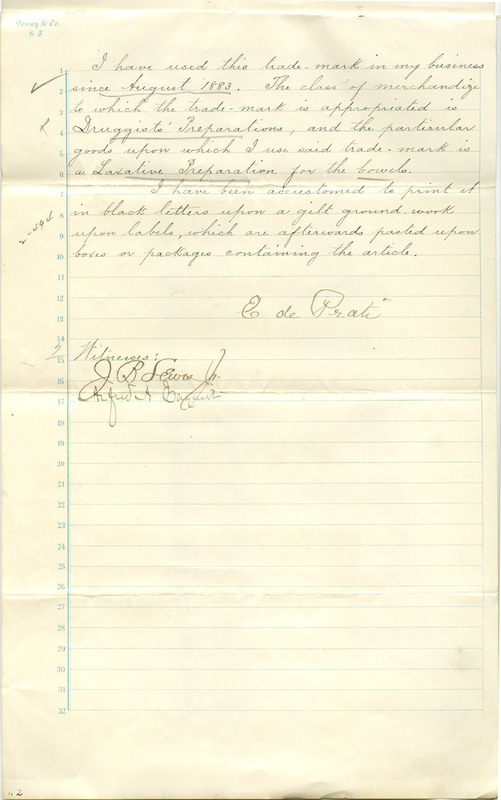 Dewey & Co.
S. F.
1 I have used this trade-mark in my business
2 since August 1883. The class of merchandize
3 to which the trade-mark is appropriated is
4 Druggists' Preparations, and the particular
5 goods upon which I use said trade-mark is
6 a Laxative Preparation for the bowels.
7 I have been accustomed to print it
8 in black letters upon a gilt ground-work
9 upon labels, which are afterwards pasted upon
10 boxes or packages containing the article.
11
12
13 E de Prati
14
15 Witnesses:
16 J. B. Jr.
17 Alfred A
18
19
20
21
22
23
24
25
26
27
28
29
30
31
32
2